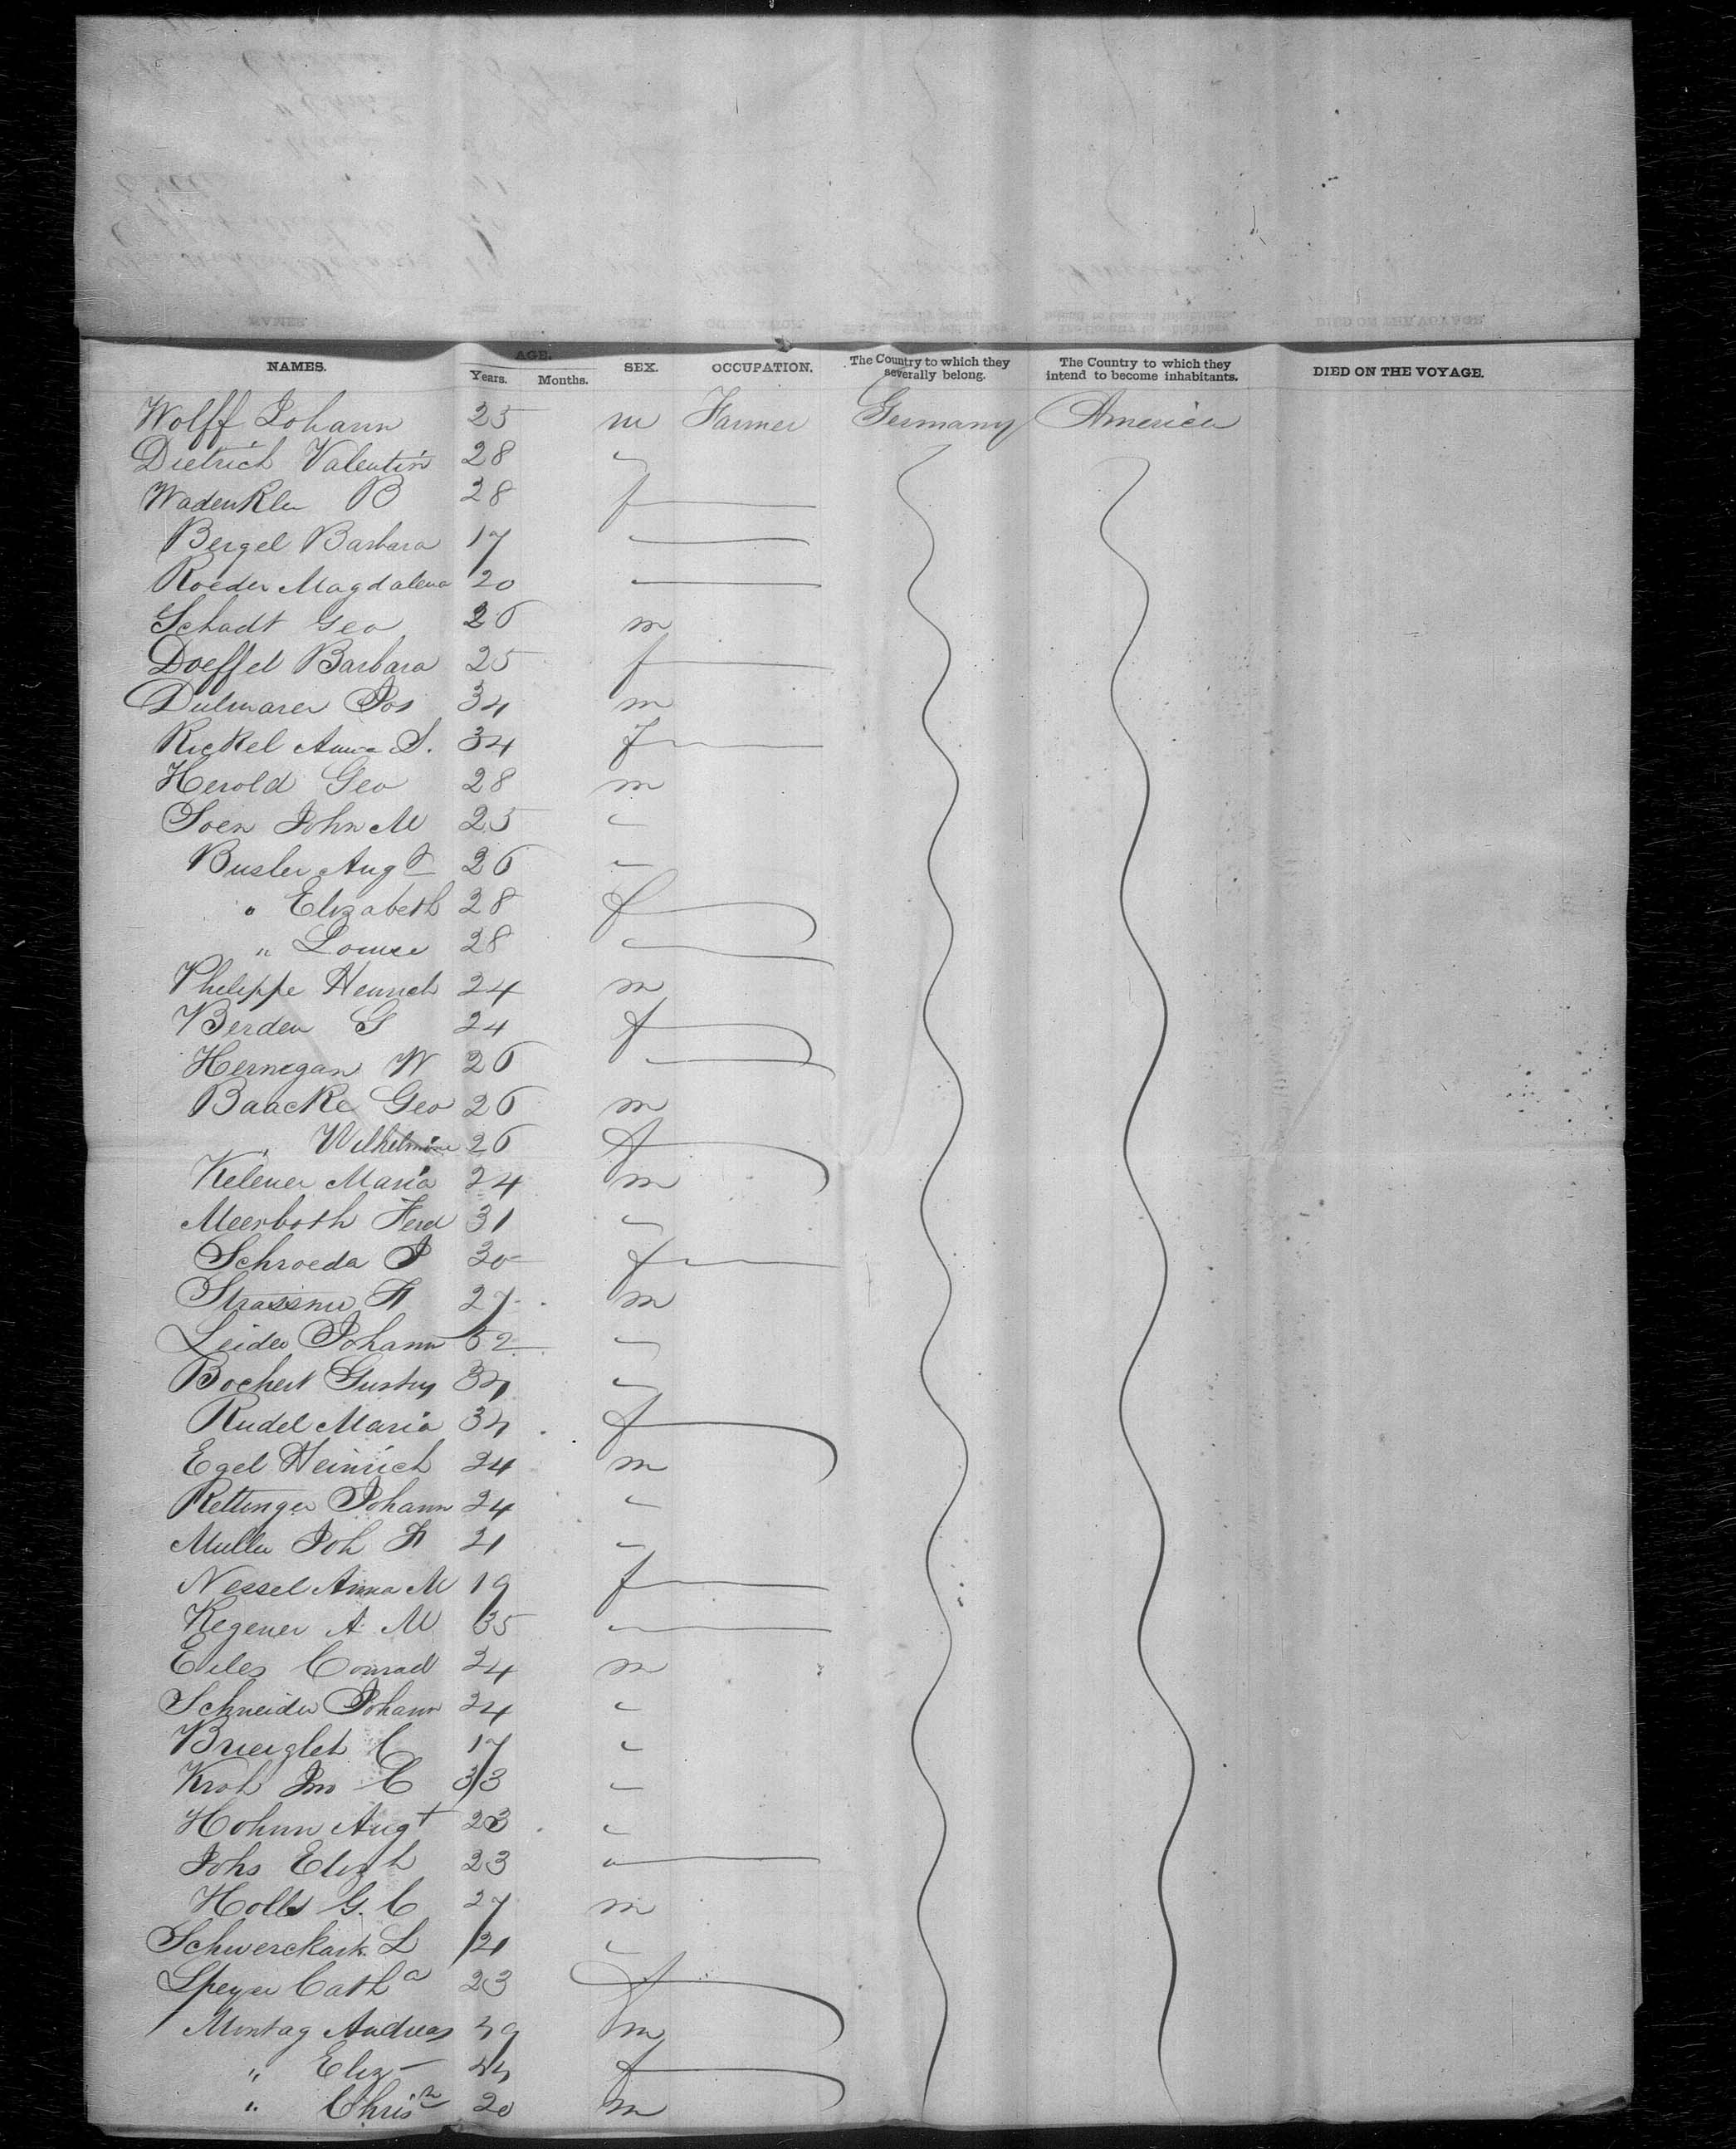 NAMES. AGE. Years. Months. SEX. OCCUPATION. The Country to which they severally belong. The Country to which they intend to become inhabitants. DIED ON THE VOYAGE.
Wolff Johann 25 m Farmer Germany America
Dietrich Valentin 28 "
B 28 f
Bergel Barbara 17 "
Roeder Magdalena 20
Schadt Geo 26 m
Doeffel Barbara 25 f
Jos 34 m
Rickel Anna S. 34 f
Herold Geo 28 m
Soen John M 25 "
Busler Augt 26 "
" Elizabeth 28 f
" Louise 28 "
Philippe Heinrich 24 m
Berden G 24 f
Hernegan W 26 "
Baacke Geo 26 m
" Wilhelmine 26 f
Kelener Maria 24 m
Meerboth Ferd 31 "
Schroeda J 30 f
27 m
Leider Johann 32 "
Bochert Gustv 34 "
Rudel Maria 34 f
Egel Heinrich 24 m
Rettinger Johann 24 "
Muller Joh H 21 "
Nessel Anna M 19 f
Kegener A. M 35 "
Eiles Conrad 24 m
Schneider Johann 24 "
C 17 "
Kroh Jno C 33 "
Hohnn Augt 23 "
Johs Elizh 23 "
G. C 27 m
L 21 "
Speyer Catha 23 f
Montag Andreas 49 m
" Eliz 44 f
" Chrisn 20 m